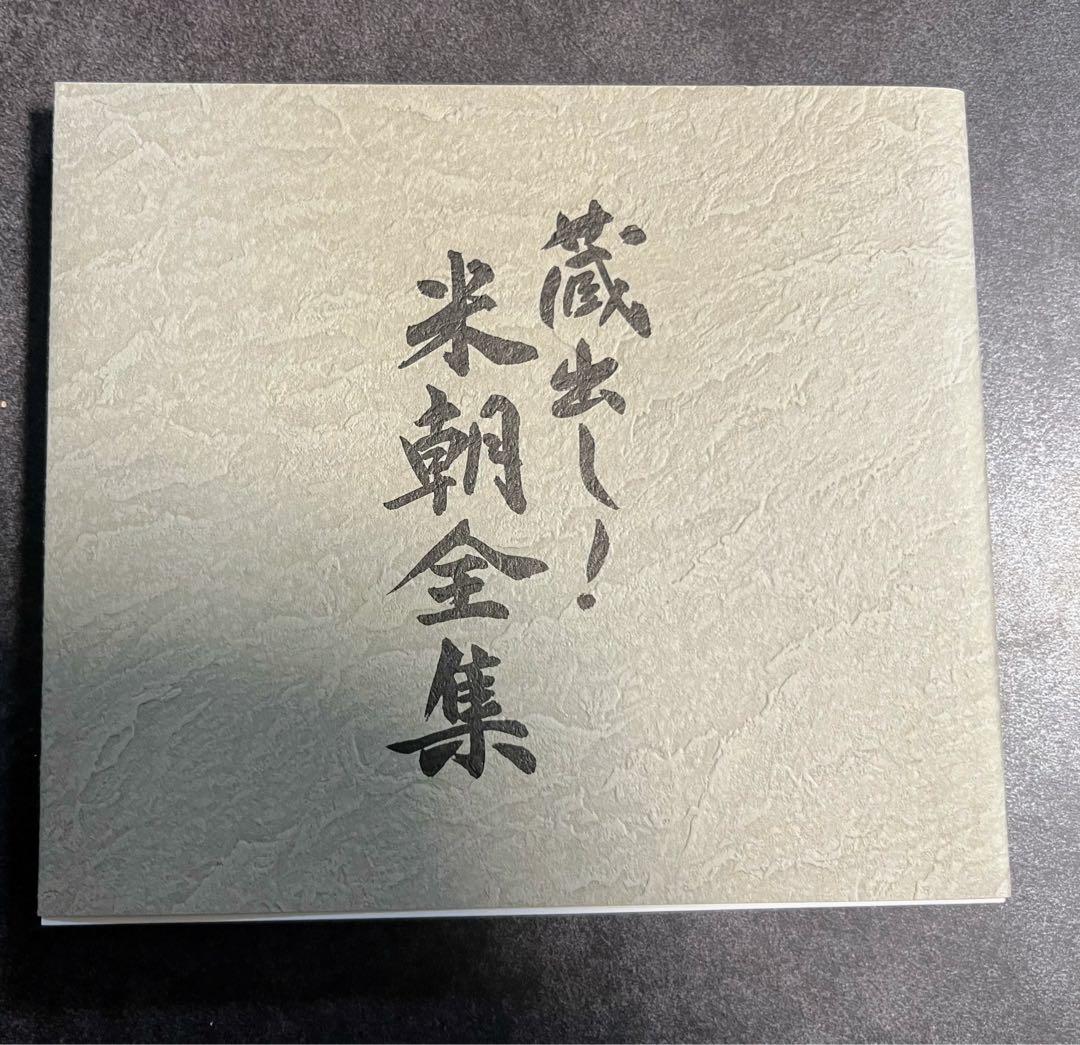 蔵出し!
米朝全集